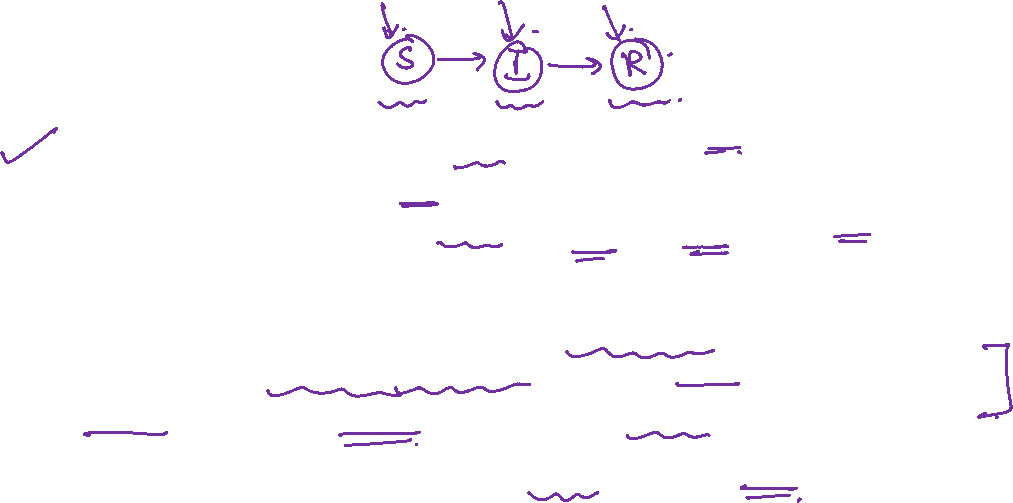 S I R